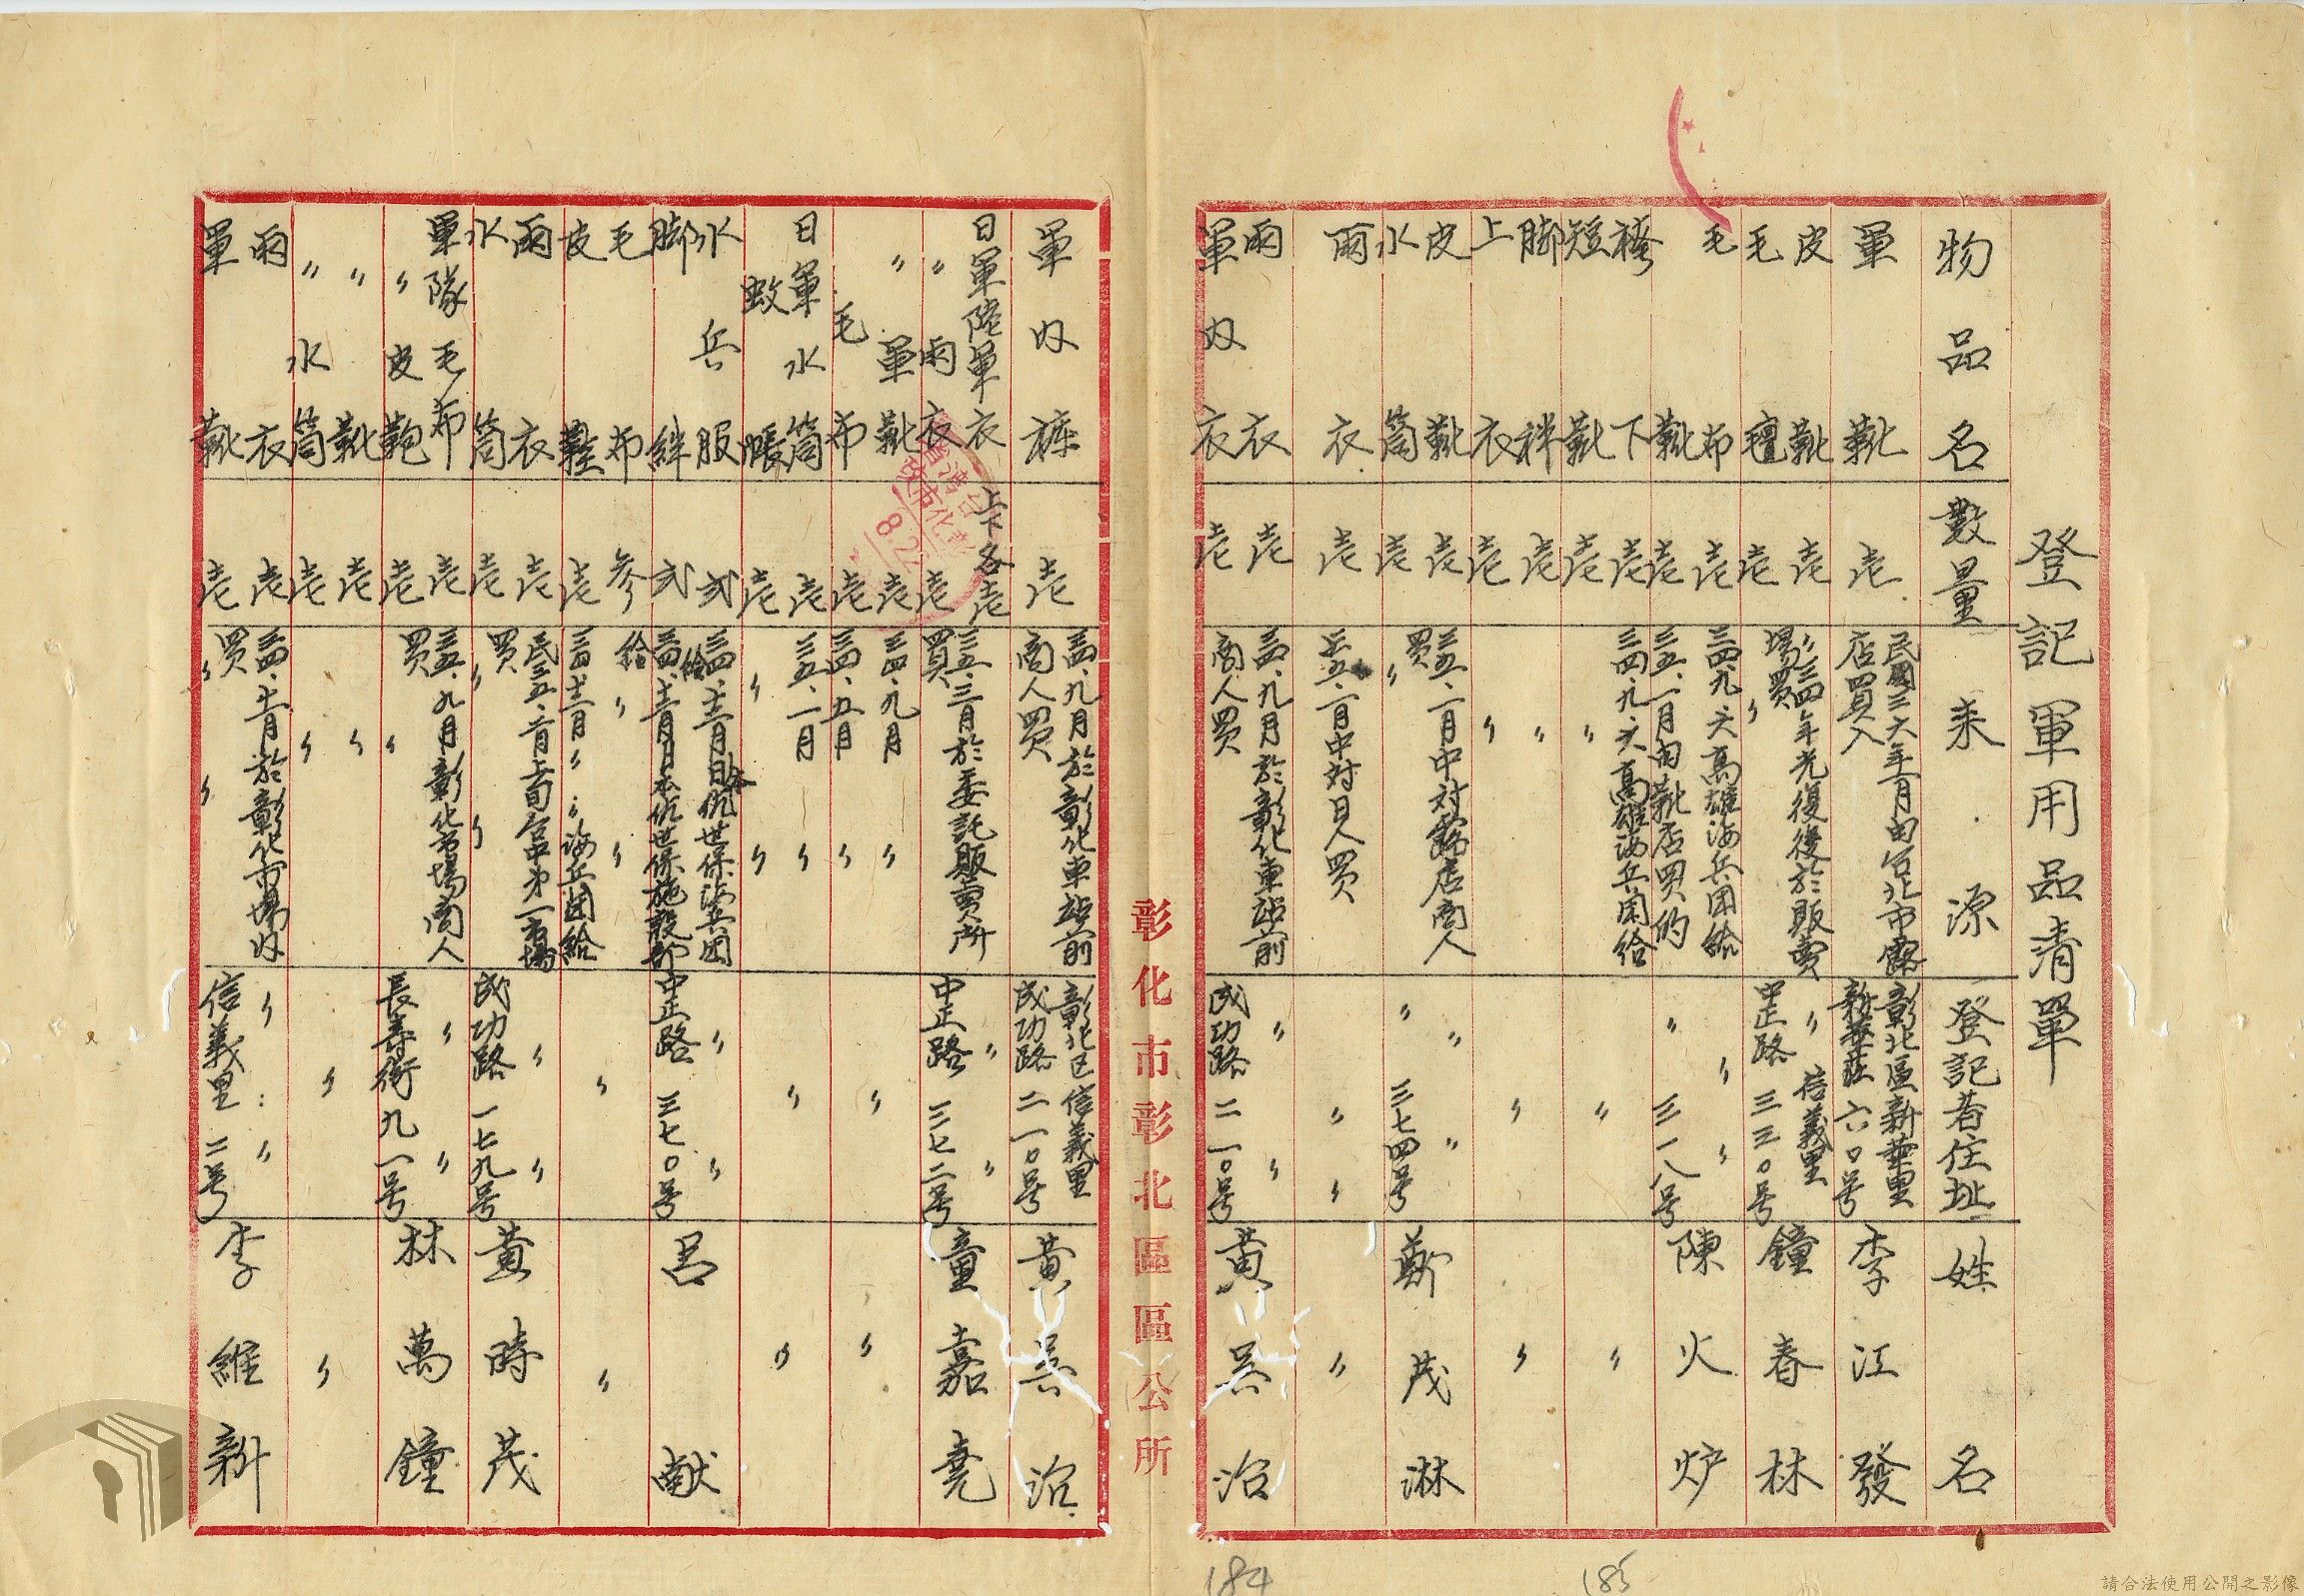 登記軍用品清單
物品名 數量 来源 登記者住址 姓名
軍靴 壱 民國三六年一月由台北市露店買入 彰北區新華里新華莊六〇号 李江發
皮靴 壱 〃三四年光復後於販賣場買 〃信義里中正路三三〇号 鐘春林
毛氈 壱 〃
毛布 壱 三四、九、六高雄海兵団給 〃 〃 三一八号 陳火炉
〃靴 壱 三五、一月向靴店買的
袴下 壱 三四、九、六高雄海兵団給 〃 〃
短靴 壱 〃
脚袢 壱 〃 〃 〃
上衣 壱 〃
皮靴 壱 三五、一月中対露店商人買 〃 〃 三七四号 鄭茂淋
水筒 壱 〃
雨衣 壱 三五、一月中対日人買 〃 〃 〃
雨衣 壱 三四、九月於彰化車站前商人買 〃 〃 成功路二一〇号 黄吳治
軍内衣 壱
彰化市彰北區區公所
軍内褲 壱 三四、九月於彰化車站前商人買 彰北区信義里成功路二一〇号 黄吳治
日軍陸軍衣 上下各壱 三五、三月於委託販賣所買 〃 〃 中正路三七二号 童嘉堯
〃雨衣 壱
〃軍靴 壱 三四、九月 〃 〃 〃
毛布 壱 三四、五月 〃
日軍水筒 壱 三五、一月 〃 〃 〃
蚊帳 壱 〃 〃
水兵服 弍 三四、十二月日本佐世保海兵団給 〃 〃 中正路三七〇号 呂献
脚絆 弍 三四、十二月日本佐世保施設部給
毛布 参 〃 〃 〃 〃
皮鞋 壱 三四、十二月〃〃海兵団給
雨衣 壱 民三五、二月上旬台中第一市場買 〃 〃 成功路一七九号 黄時茂
水筒 壱 〃 〃
軍隊毛布 壱 三五、九月彰化市場商人買 〃 〃 長寿街九一号 林萬鐘
〃皮鞄 壱 〃
〃靴 壱 〃 〃 〃
〃水筒 壱 〃
雨衣 壱 三四、十一月於彰化市場内買 〃 〃 信義里二号 李維新
軍靴 壱 〃 〃
8.2
184
185
請合法使用公開之影像